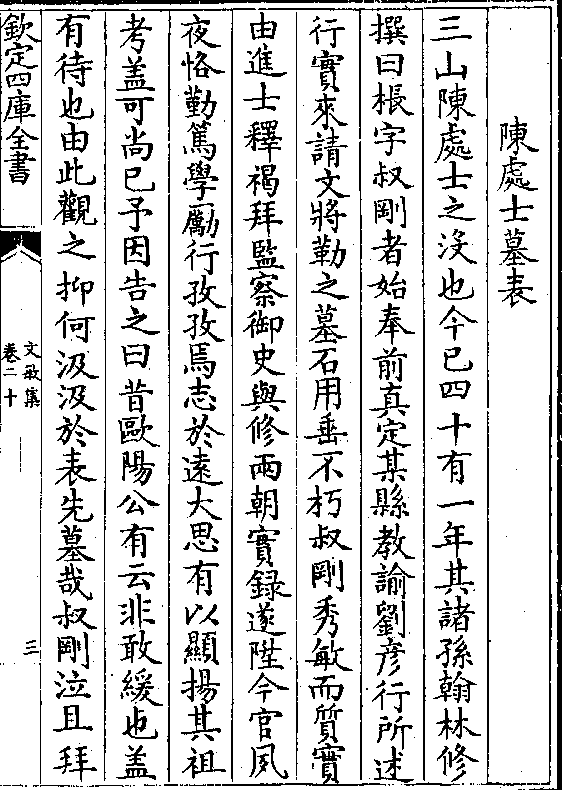 陳處士墓表
三山陳處士之沒也今已四十有一年其諸孫翰林修
撰曰棖字叔剛者始奉前真定某縣教諭劉彦行所述
行實來請文將勒之墓石用垂不朽叔剛秀敏而質實
由進士釋褐拜監察御史與修兩朝實録遂陞今官夙
夜恪勤篤學勵行孜孜焉志於遠大思有以顯揚其祖
考盖可尚已予因告之曰昔歐陽公有云非敢緩也盖
有待也由此觀之抑何汲汲於表先墓哉叔剛泣且拜
欽定四庫全書
文敏集
卷二十
三